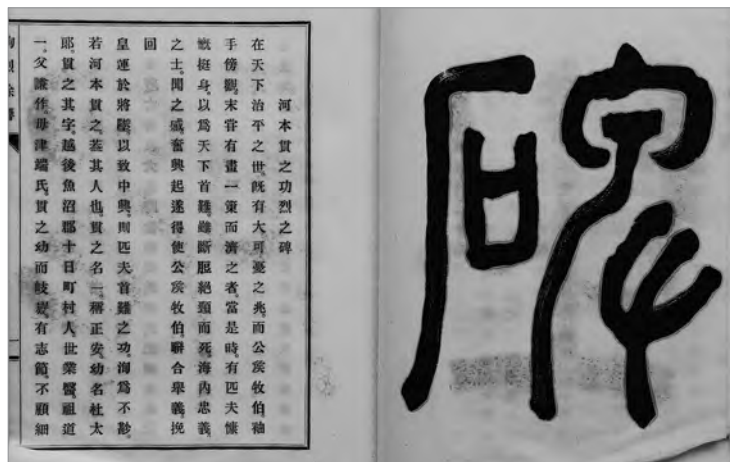 碑
河本貫之功烈之碑
在天下治平之世。旣有大可憂之兆。而公侯牧伯袖
手傍觀。未嘗有畫一策而濟之者。當是時。有匹夫慷
慨挺身。以爲天下首難。雖斷脰絕頸而死。海內忠義
之士。聞之感奮興起。遂得使公侯牧伯聯合擧義。挽
回
皇運於將墜。以致中興。則匹夫首難之功。洵爲不尠。
若河本貫之。葢其人也。貫之名一。稱正安。幼名杜太
耶。貫之其字。越後魚沼郡十日町村人。世業醫。祖道
一。父謙作。母津端氏。貫之幼而岐嶷。有志節。不顧細